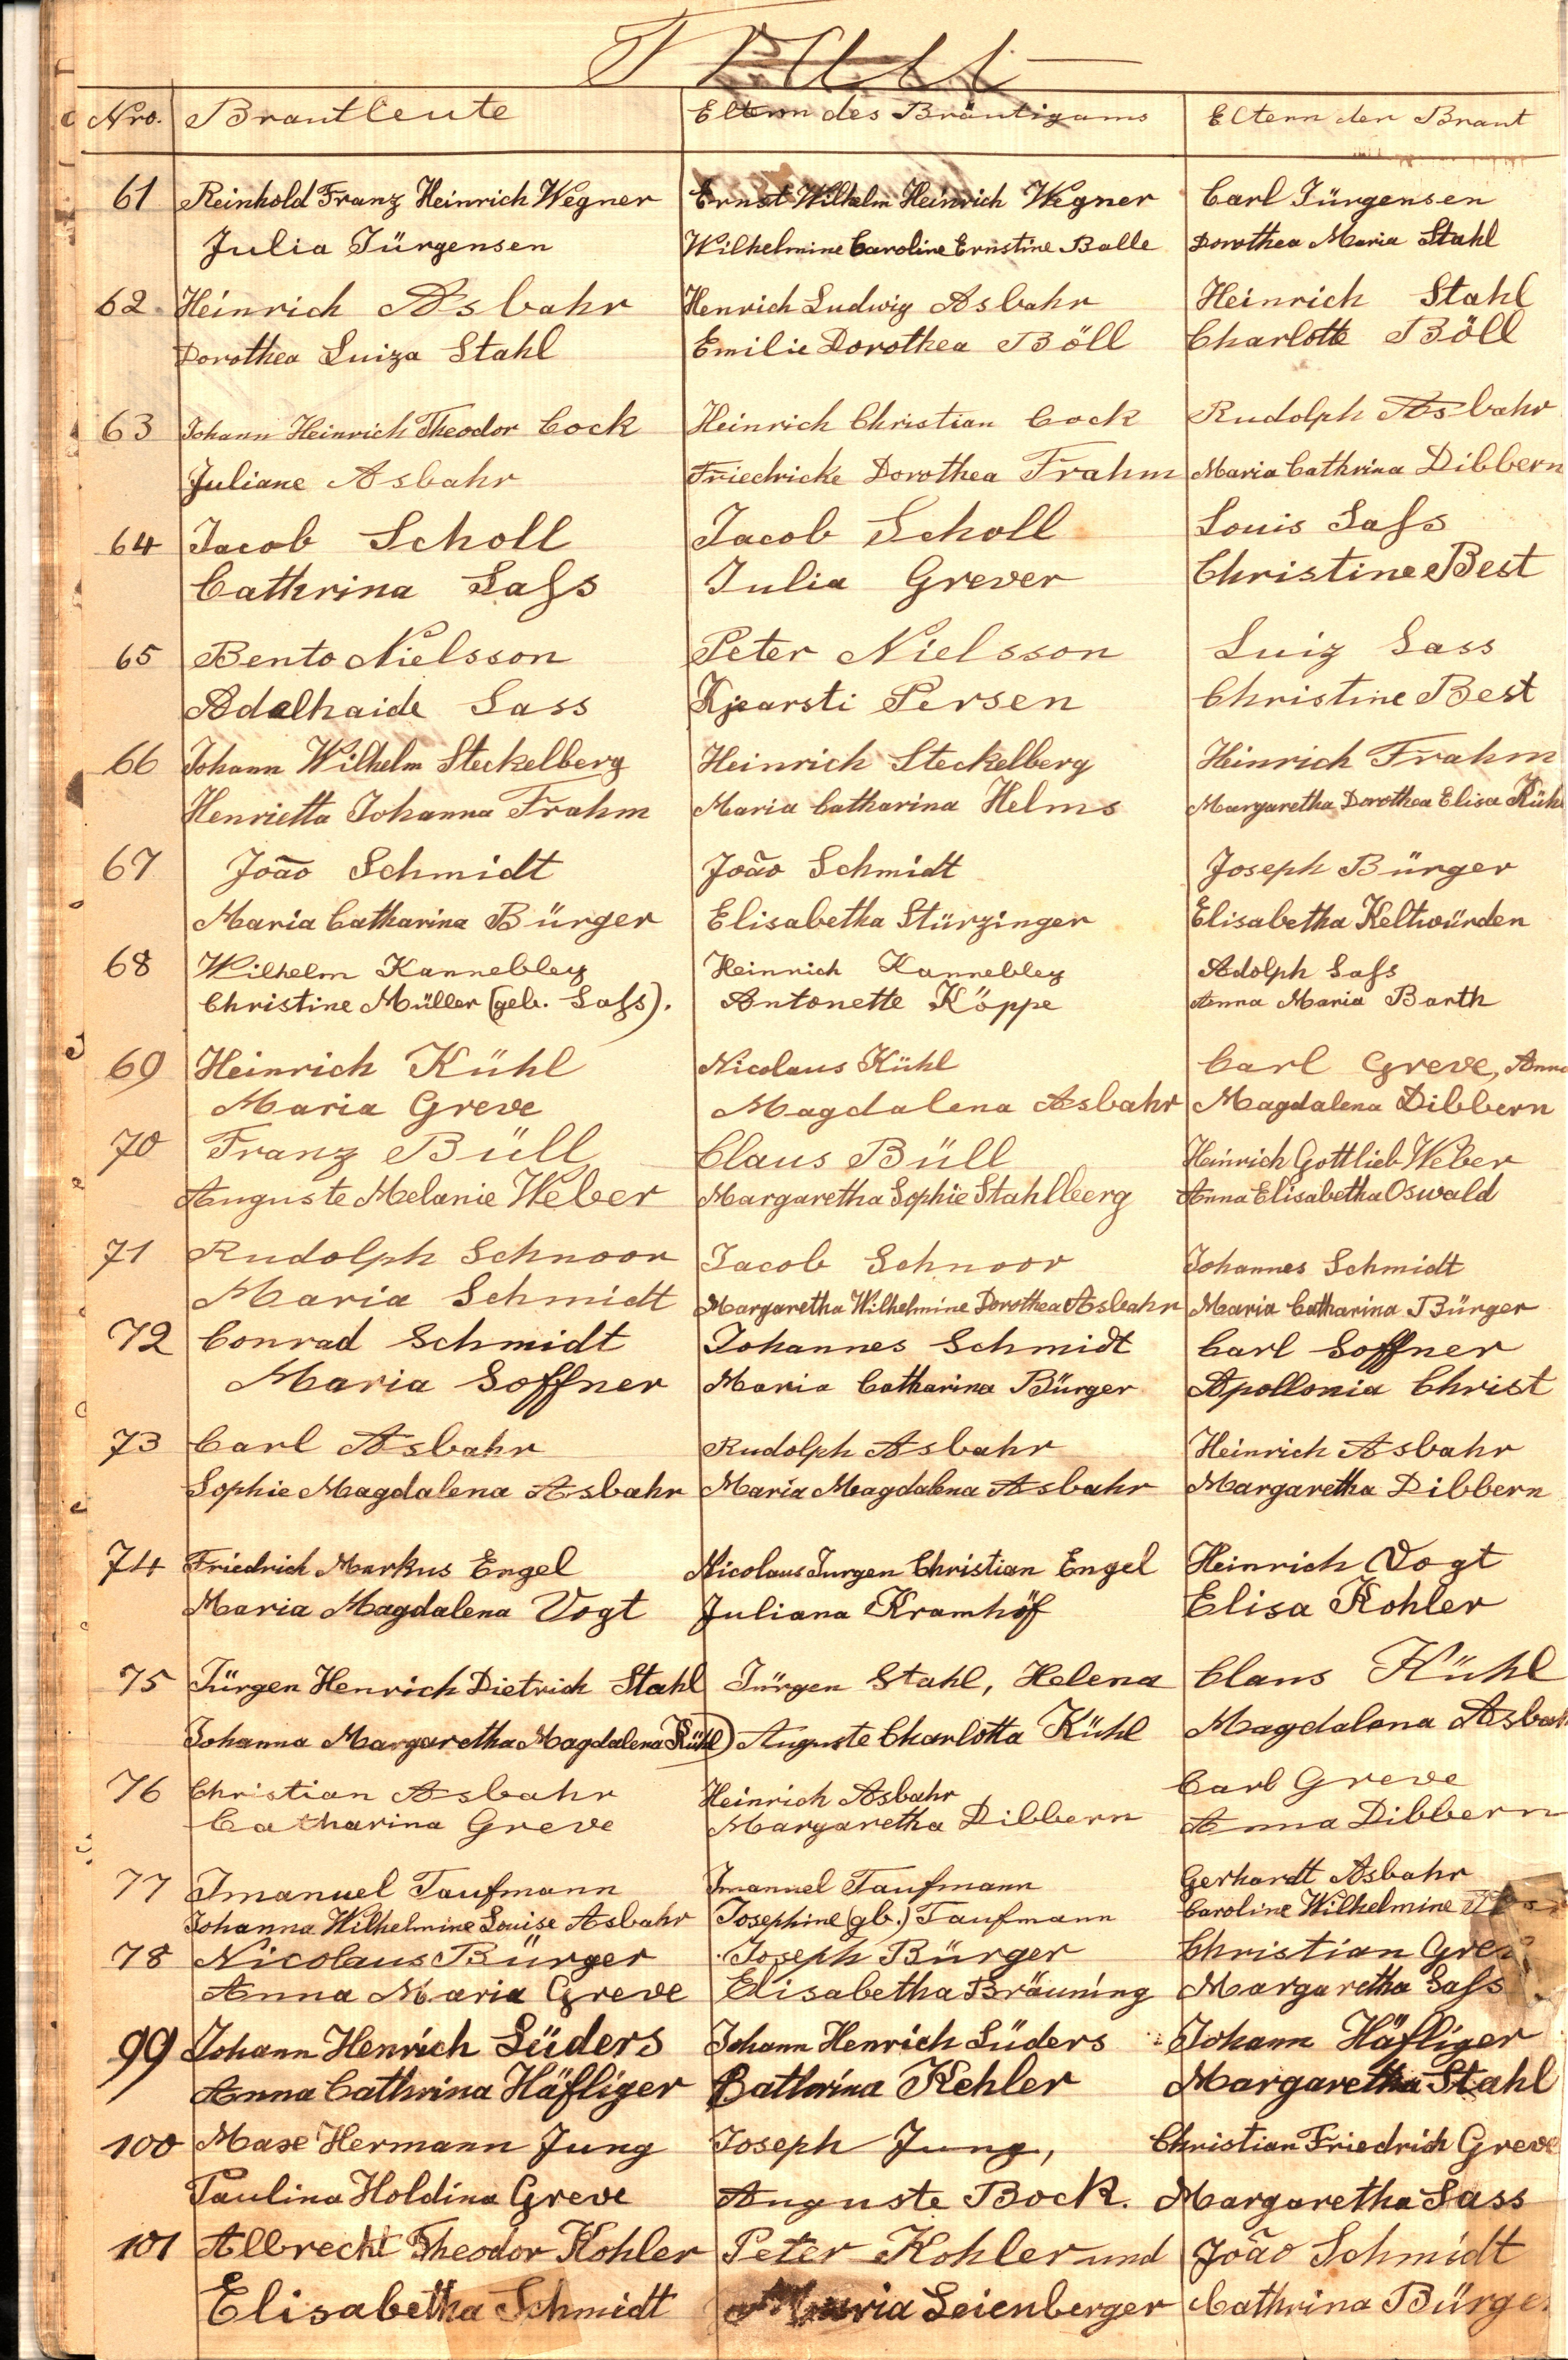 Nro. Brautleute Eltern des Bräutigams Eltern der Braut
61 Reinhold Franz Heinrich Wegner Ernst Wilhelm Heinrich Wegner Carl Jürgensen
Julia Jürgensen Wilhelmine Caroline Ernstine Balle Dorothea Maria Stahl
62 Heinrich Asbahr Henrich Ludwig Asbahr Heinrich Stahl
Dorothea Luiza Stahl Emilie Dorothea Böll Charlotte Böll
63 Johann Heinrich Theodor Cock Heinrich Christian Cock Rudolph Asbahr
Juliane Asbahr Friedricke Dorothea Frahm Maria Cathrina Dibbern
64 Jacob Scholl Jacob Scholl Louis Saſs
Cathrina Saſs Julia Grever Christine Best
65 Bento Nielsson Peter Nielsson Luiz Sass
Adelhaide Sass Kjearsti Persen Christine Best
66 Johann Wilhelm Steckelberg Heinrich Steckelberg Heinrich Frahm
Henrietta Johanna Frahm Maria Catharina Helms Margaretha Dorothea Elisa Küh
67 João Schmidt João Schmidt Joseph Bürger
Maria Catharina Bürger Elisabetha Stürzinger Elisabetha Keltwürden
68 Wilhelm Kannebley Heinrich Kannebley Adolph Saſs
Christine Müller (geb. Saſs). Antonette Köppe Anna Maria Barth
69 Heinrich Kühl Nicolaus Kühl Carl Greve, Anna
Maria Greve Magdalena Asbahr Magdalena Dibbern
70 Franz Büll Claus Büll Heinrich Gottlieb Weber
Auguste Melanie Weber Margaretha Sophie Stahlberg Anna Elisabetha Oswald
71 Rudolph Schnoor Jacob Schnoor Johannes Schmidt
Maria Schmidt Margaretha Wilhelmine Dorothea Asbahr Maria Catharina Bürger
72 Conrad Schmidt Johannes Schmidt Carl Soffner
Maria Soffner Maria Catharina Bürger Apollonia Christ
73 Carl Asbahr Rudolph Asbahr Heinrich Asbahr
Sophie Magdalena Asbahr Maria Magdalena Asbahr Margaretha Dibbern
74 Friedrich Markus Engel Nicolaus Jurgen Christian Engel Heinrich Vogt
Maria Magdalena Vogt Juliana Kramhöf Elisa Kohler
75 Jürgen Henrich Dietrich Stahl Jürgen Stahl, Helena Claus Kühl
Johanna Margaretha Magdalena Kühl) Auguste Charlotta Kühl Magdalena Asbah
76 Christian Asbahr Heinrich Asbahr Carl Greve
Catharina Greve Margaretha Dibbern Anna Dibbern
77 Imanuel Taufmann Imanuel Taufmann Gerhardt Asbahr
Johanna Wilhelmine Louise Asbahr Josephine (gb.) Taufmann Caroline Wilhelmine
78 Nicolaus Bürger Joseph Bürger Christian Gre
Anna Maria Greve Elisabetha Bräuning Margaretha Saſs
99 Johann Henrich Lüders Johann Henrich Lüders Johann Häfliger
Anna Cathrina Häfliger Cathrina Kehler Margaretha Stahl
100 Max Hermann Jung Joseph Jung, Christian Friedrich Greve
Paulina Holdina Greve Auguste Bock. Margaretha Sass
101 Albrecht Theodor Kohler Peter Kohler und João Schmidt
Elisabetha Schmidt Maria Leienberger Cathrina Bürge